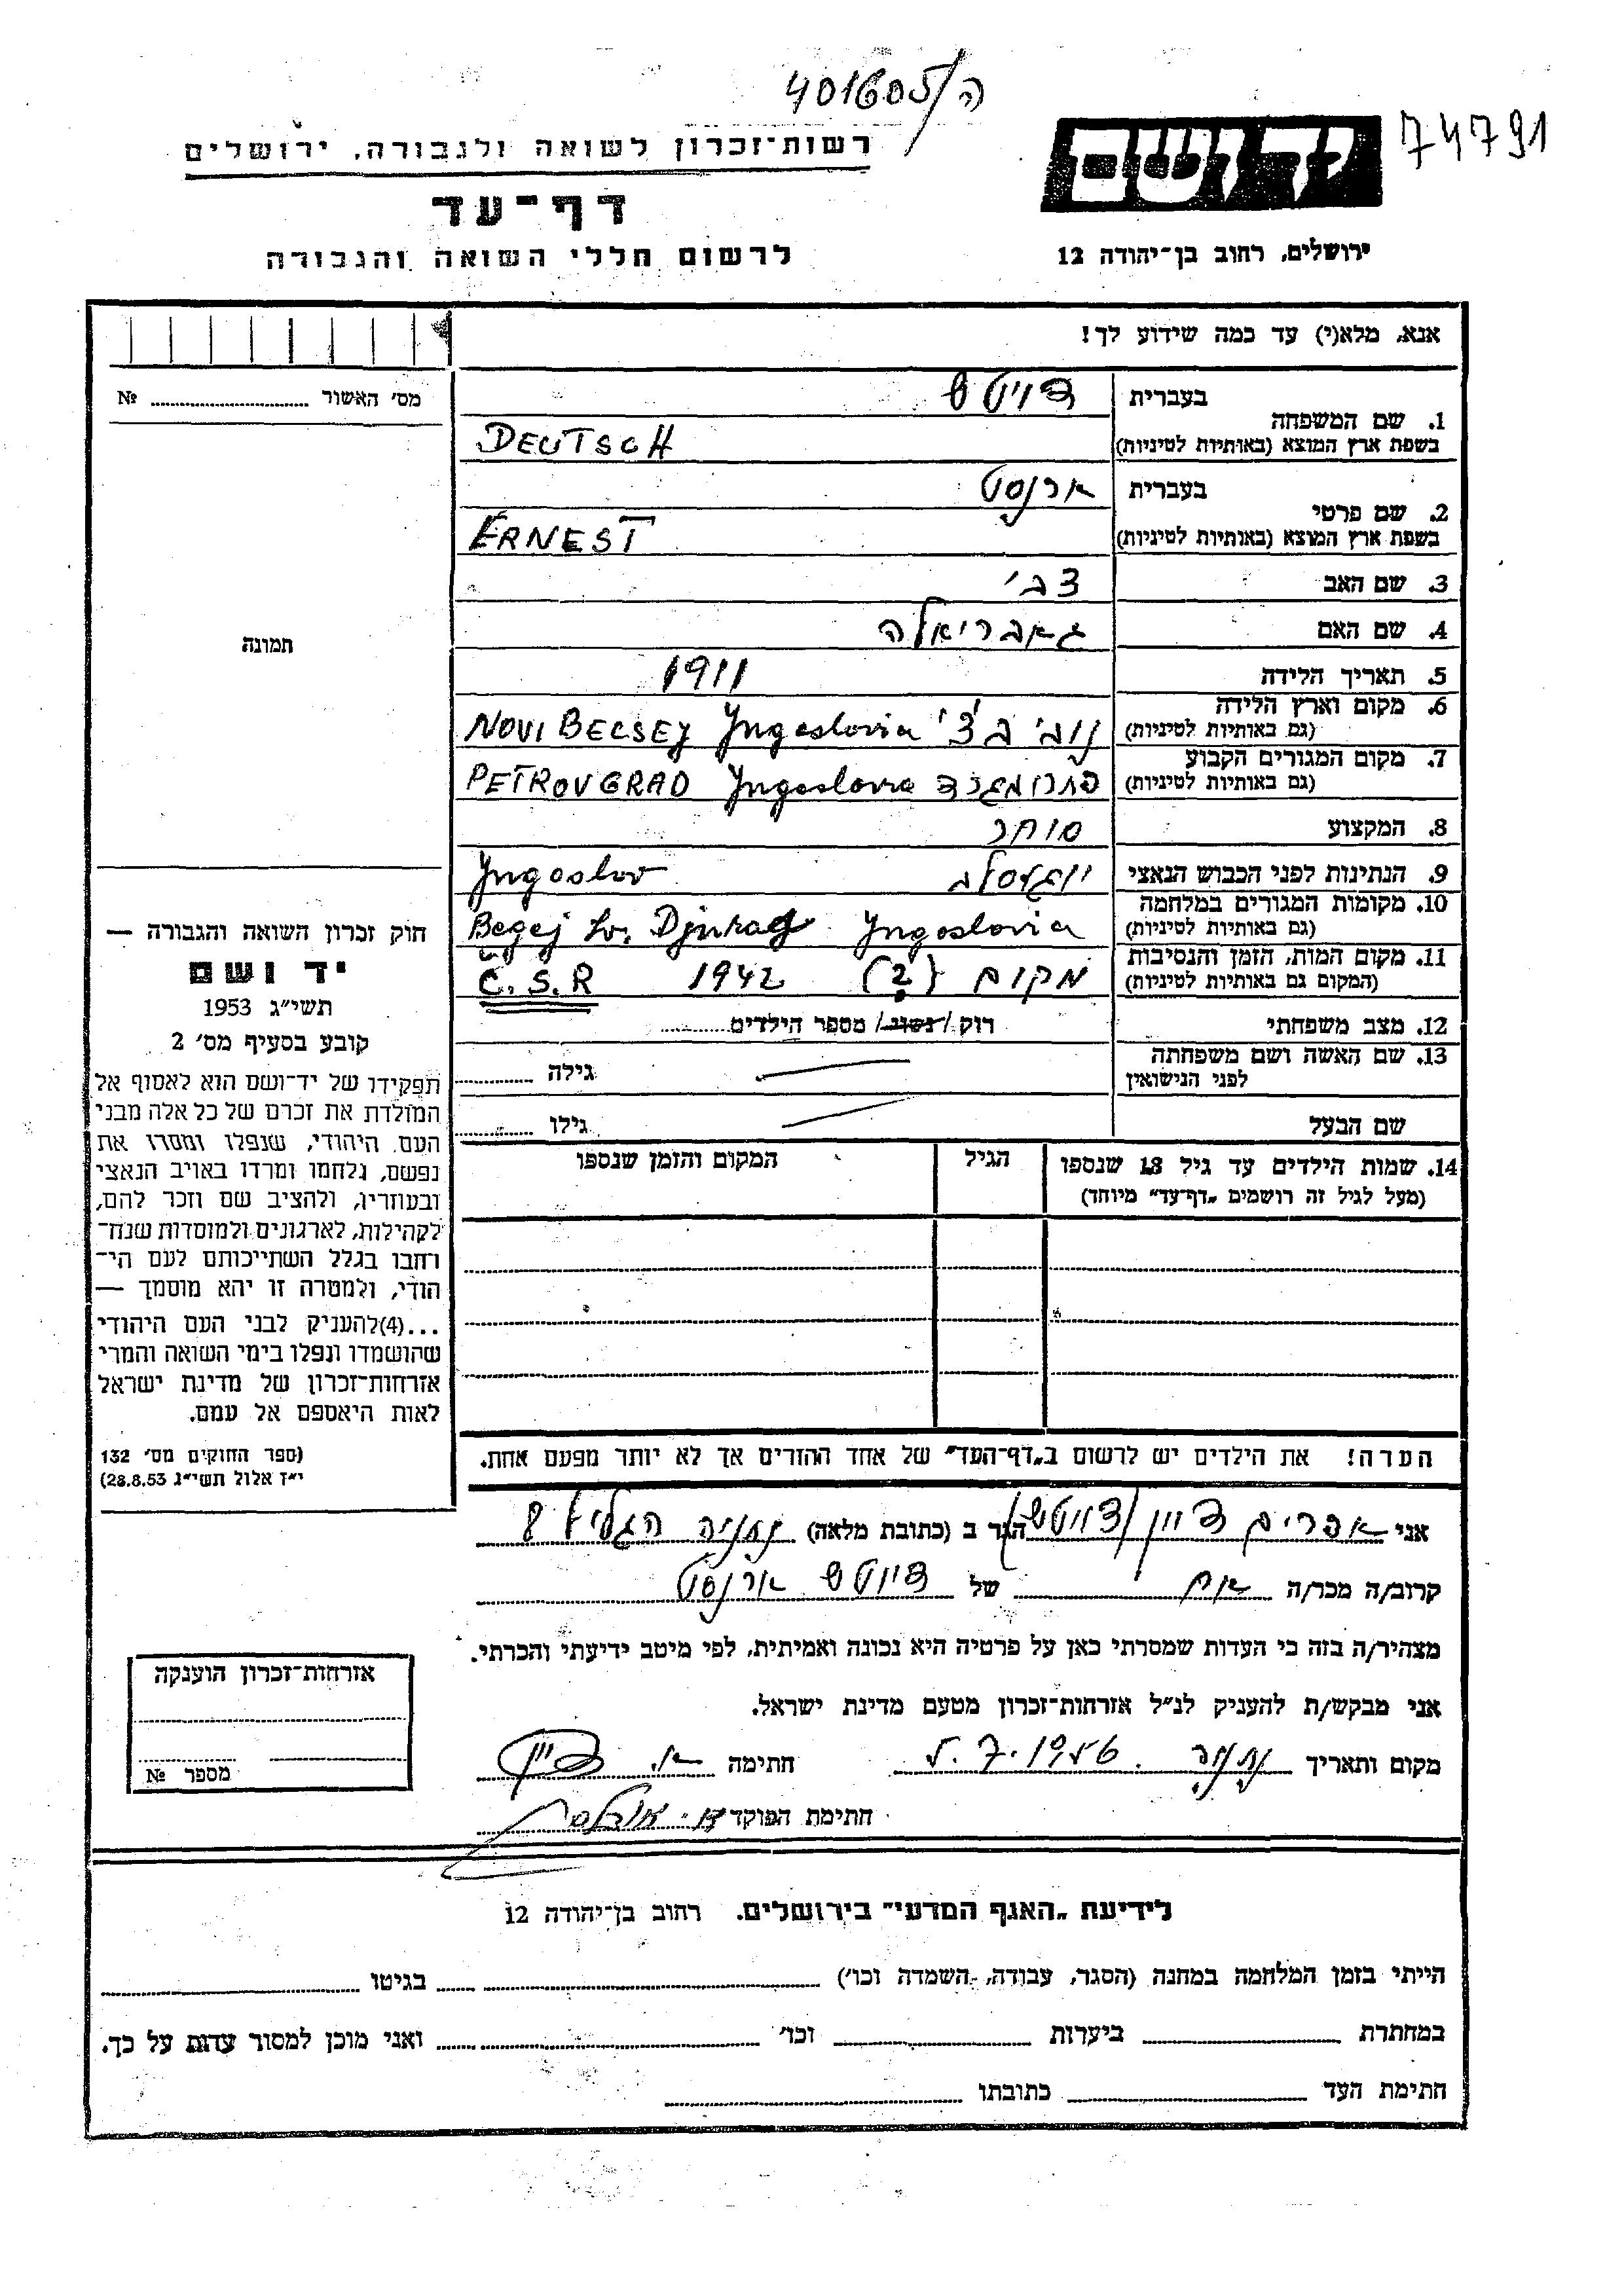 401605/ה
74791
יד ושם
רשות־זכרון לשואה ולגבורה, ירושלים
דף־עד
ירושלים, רחוב בן־יהודה 12
לרשום חללי השואה והגבורה
אנא, מלא(י) עד כמה שידוע לך!
מס' האשור № 
בעברית דויטש
1. שם המשפחה
בשפת ארץ המוצא (באותיות לטיניות) DEUTSCH
בעברית ארנסט
2. שם פרטי
בשפת ארץ המוצא (באותיות לטיניות) ERNEST
3. שם האב צבי
4. שם האם גאבריאלה
תמונה
5. תאריך הלידה 1911
6. מקום וארץ הלידה
(גם באותיות לטיניות) NOVI BECSEJ Jugoslovia נובי בצ'י
7. מקום המגורים הקבוע
(גם באותיות לטיניות) PETROVGRAD Jugoslovia פתרובגרד
8. המקצוע סוחר
9. הנתינות לפני הכבוש הנאצי יוגוסלב Jugoslov
10. מקומות המגורים במלחמה
(גם באותיות לטיניות) Begej Sv. Djuradj Jugoslovia
11. מקום המות, הזמן והנסיבות
(המקום גם באותיות לטיניות) מקום (?) 1942 C.S.R
12. מצב משפחתי רוק/נשוי/ מספר הילדים
13. שם האשה ושם משפחתה
לפני הנישואין גילה
שם הבעל גילו
14. שמות הילדים עד גיל 18 שנספו הגיל המקום והזמן שנספו
(מעל לגיל זה רושמים „דף־עד" מיוחד)
חוק זכרון השואה והגבורה —
יד ושם
תשי"ג 1953
קובע בסעיף מס' 2
תפקידו של יד־ושם הוא לאסוף אל
המולדת את זכרם של כל אלה מבני
העם היהודי, שנפלו ומסרו את
נפשם, נלחמו ומרדו באויב הנאצי
ובעוזריו, ולהציב שם וזכר להם,
לקהילות, לארגונים ולמוסדות שנח־
רחבו בגלל השתייכותם לעם הי־
הודי, ולמטרה זו יהא מוסמך —
...(4)להעניק לבני העם היהודי
שהושמדו ונפלו בימי השואה והמרי
אזרחות־זכרון של מדינת ישראל
לאות היאספם אל עמם.
(ספר החוקים מס' 132
י"ז אלול תשי"ג 28.8.53)
הערה! את הילדים יש לרשום ב„דף־העד" של אחד ההורים אך לא יותר מפעם אחת.
אני אפרים דיין /דויטש/ הגר ב (כתובת מלאה) נתניה הגליל 8
קרוב/ה מכר/ה אח של דויטש ארנסט
מצהיר/ה בזה כי העדות שמסרתי כאן על פרטיה היא נכונה ואמיתית, לפי מיטב ידיעתי והכרתי.
אני מבקש/ת להעניק לנ"ל אזרחות־זכרון מטעם מדינת ישראל.
מקום ותאריך 5.7.1956 חתימה א. דיין
חתימת הפוקד
אזרחות־זכרון הוענקה
מספר №
לידיעת „האגף המדעי" בירושלים. רחוב בן־יהודה 12
הייתי בזמן המלחמה במחנה (הסגר, עבודה, השמדה וכו') בגיטו
במחתרת ביערות וכו' ואני מוכן למסור עדות על כך.
חתימת העד כתובתו